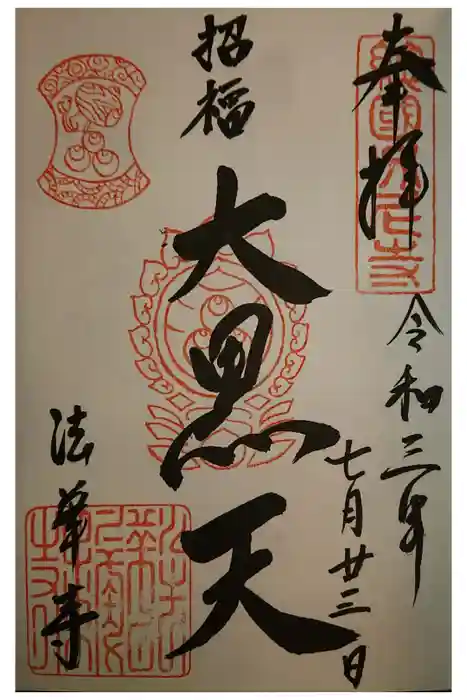 奉拝
令和三年
七月廿三日
招福
大黒天
法華寺